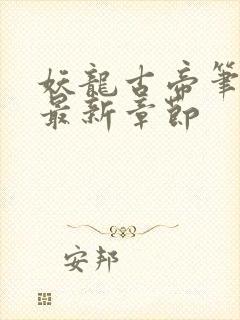 妖龍古帝筆
最新章節
安邦